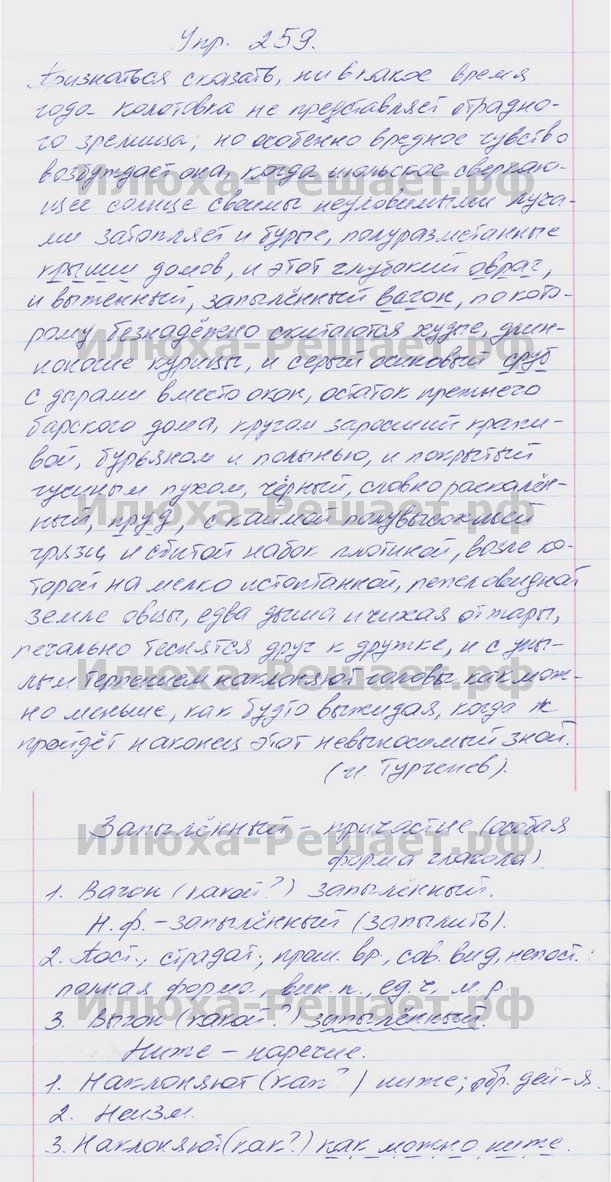 Упр. 259.
Признаться сказать, ни в какое время
года Колотовка не представляет отрадно-
го зрелища; но особенно вредное чувство
возбуждает она, когда июльское сверкаю-
щее солнце своими неуловимыми луча-
ми затопляет и бурые, полуразмётанные
крыши домов, и этот глубокий овраг,
и выженный, запылённый вагон, по кото-
рому безнадёжно скитаются худые, длин-
ноногие курицы, и серый осиновый сруб
с дырами вместо окон, остаток прежнего
барского дома, кругом заросший крапи-
вой, бурьяном и полынью, и покрытый
гусиным пухом, чёрный, словно раскалён-
ный, пруд, с каймой полувысохшей
грязи и сбитой набок плотиной, возле ко-
торой на мелко истоптанной, пепеловидной
земле овцы, едва дыша и чихая от жары,
печально теснятся друг к дружке, и с уны-
лым терпением наклоняют головы как мож-
но меньше, как будто выжидая, когда ж
пройдёт наконец этот невыносимый зной.
(И. Тургенев).
Запылённый – причастие (особая
форма глагола)
1. Вагон (какой?) запылённый.
Н.ф. – запылённый (запылить).
2. Пост., страдат., прош. вр., сов. вид, непост.:
полная форма, вин. п., ед. ч., м. р.
3. Выгон (какой?) запылённый.
Ниже – наречие.
1. Наклоняют (как?) ниже; обр. дей-я.
2. Неизм.
3. Наклоняют (как?) как можно ниже.
Илюха-Решает.рф
Илюха-Решает.рф
Илюха-Решает.рф
Илюха-Решает.рф
Илюха-Решает.рф
Илюха-Решает.рф